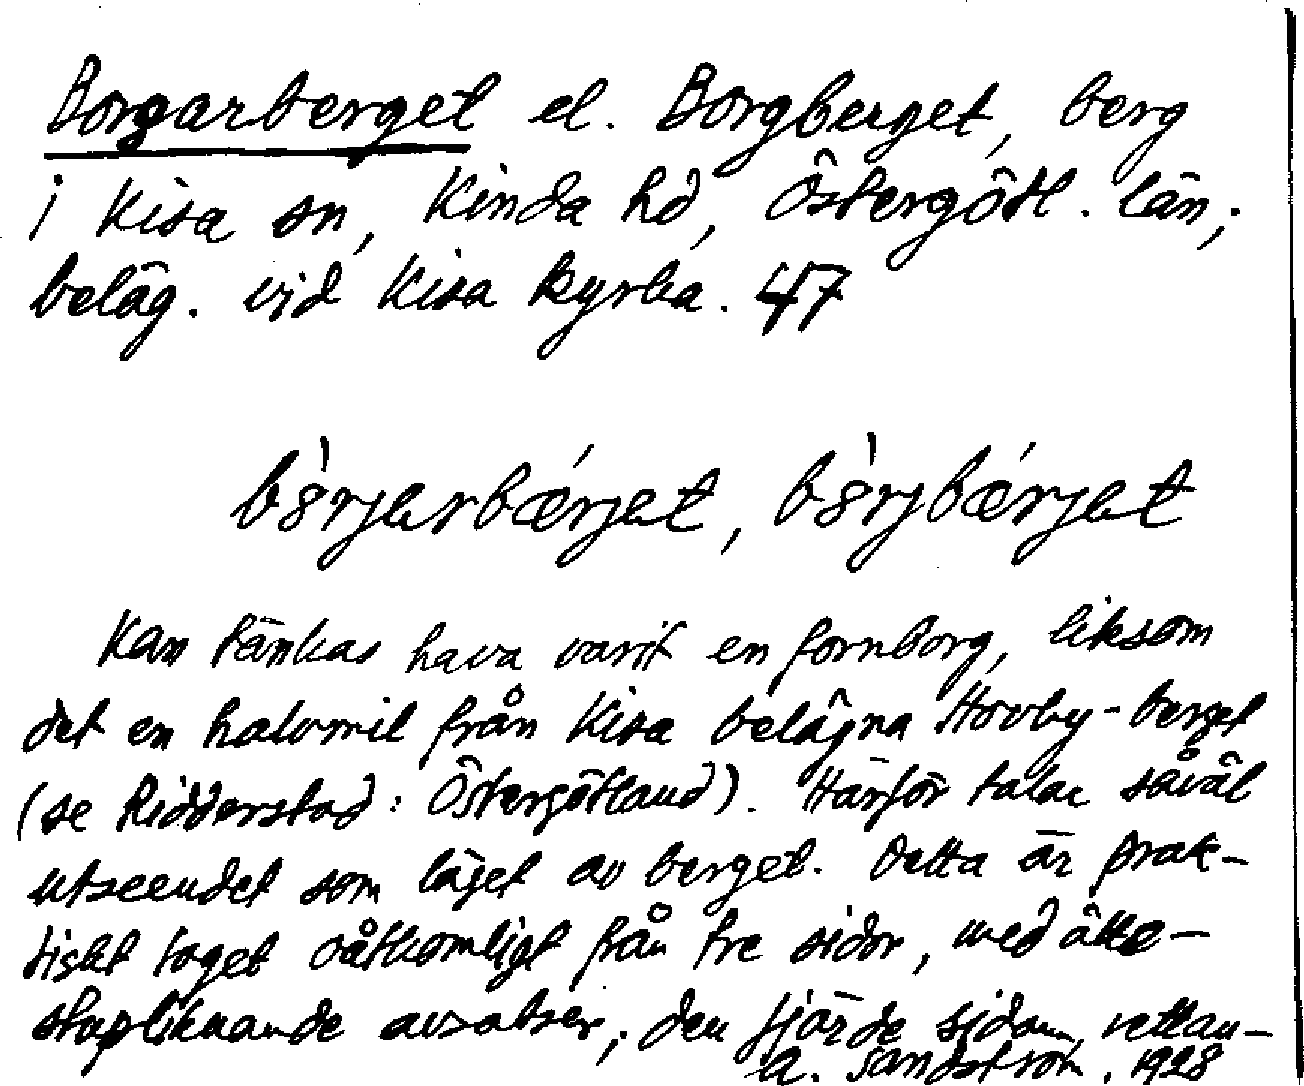 Borgarberget el. Borgberget, berg
i Kisa sn, Kinda hd, Östergötl. län;
beläg. vid Kisa kyrka. 47
Kan tänkas hava varit en fornborg, liksom
det en halvmil från Kisa belägna Hovby-berget
(se Ridderstad: Östergötland). Härför talar såväl
utseendet som läget av berget. Detta är prak-
tiskt taget oåtkomligt från tre sidor, med ätte-
stupliknande avsatser; den fjärde sidan, vettan-
A. Sandström. 1928